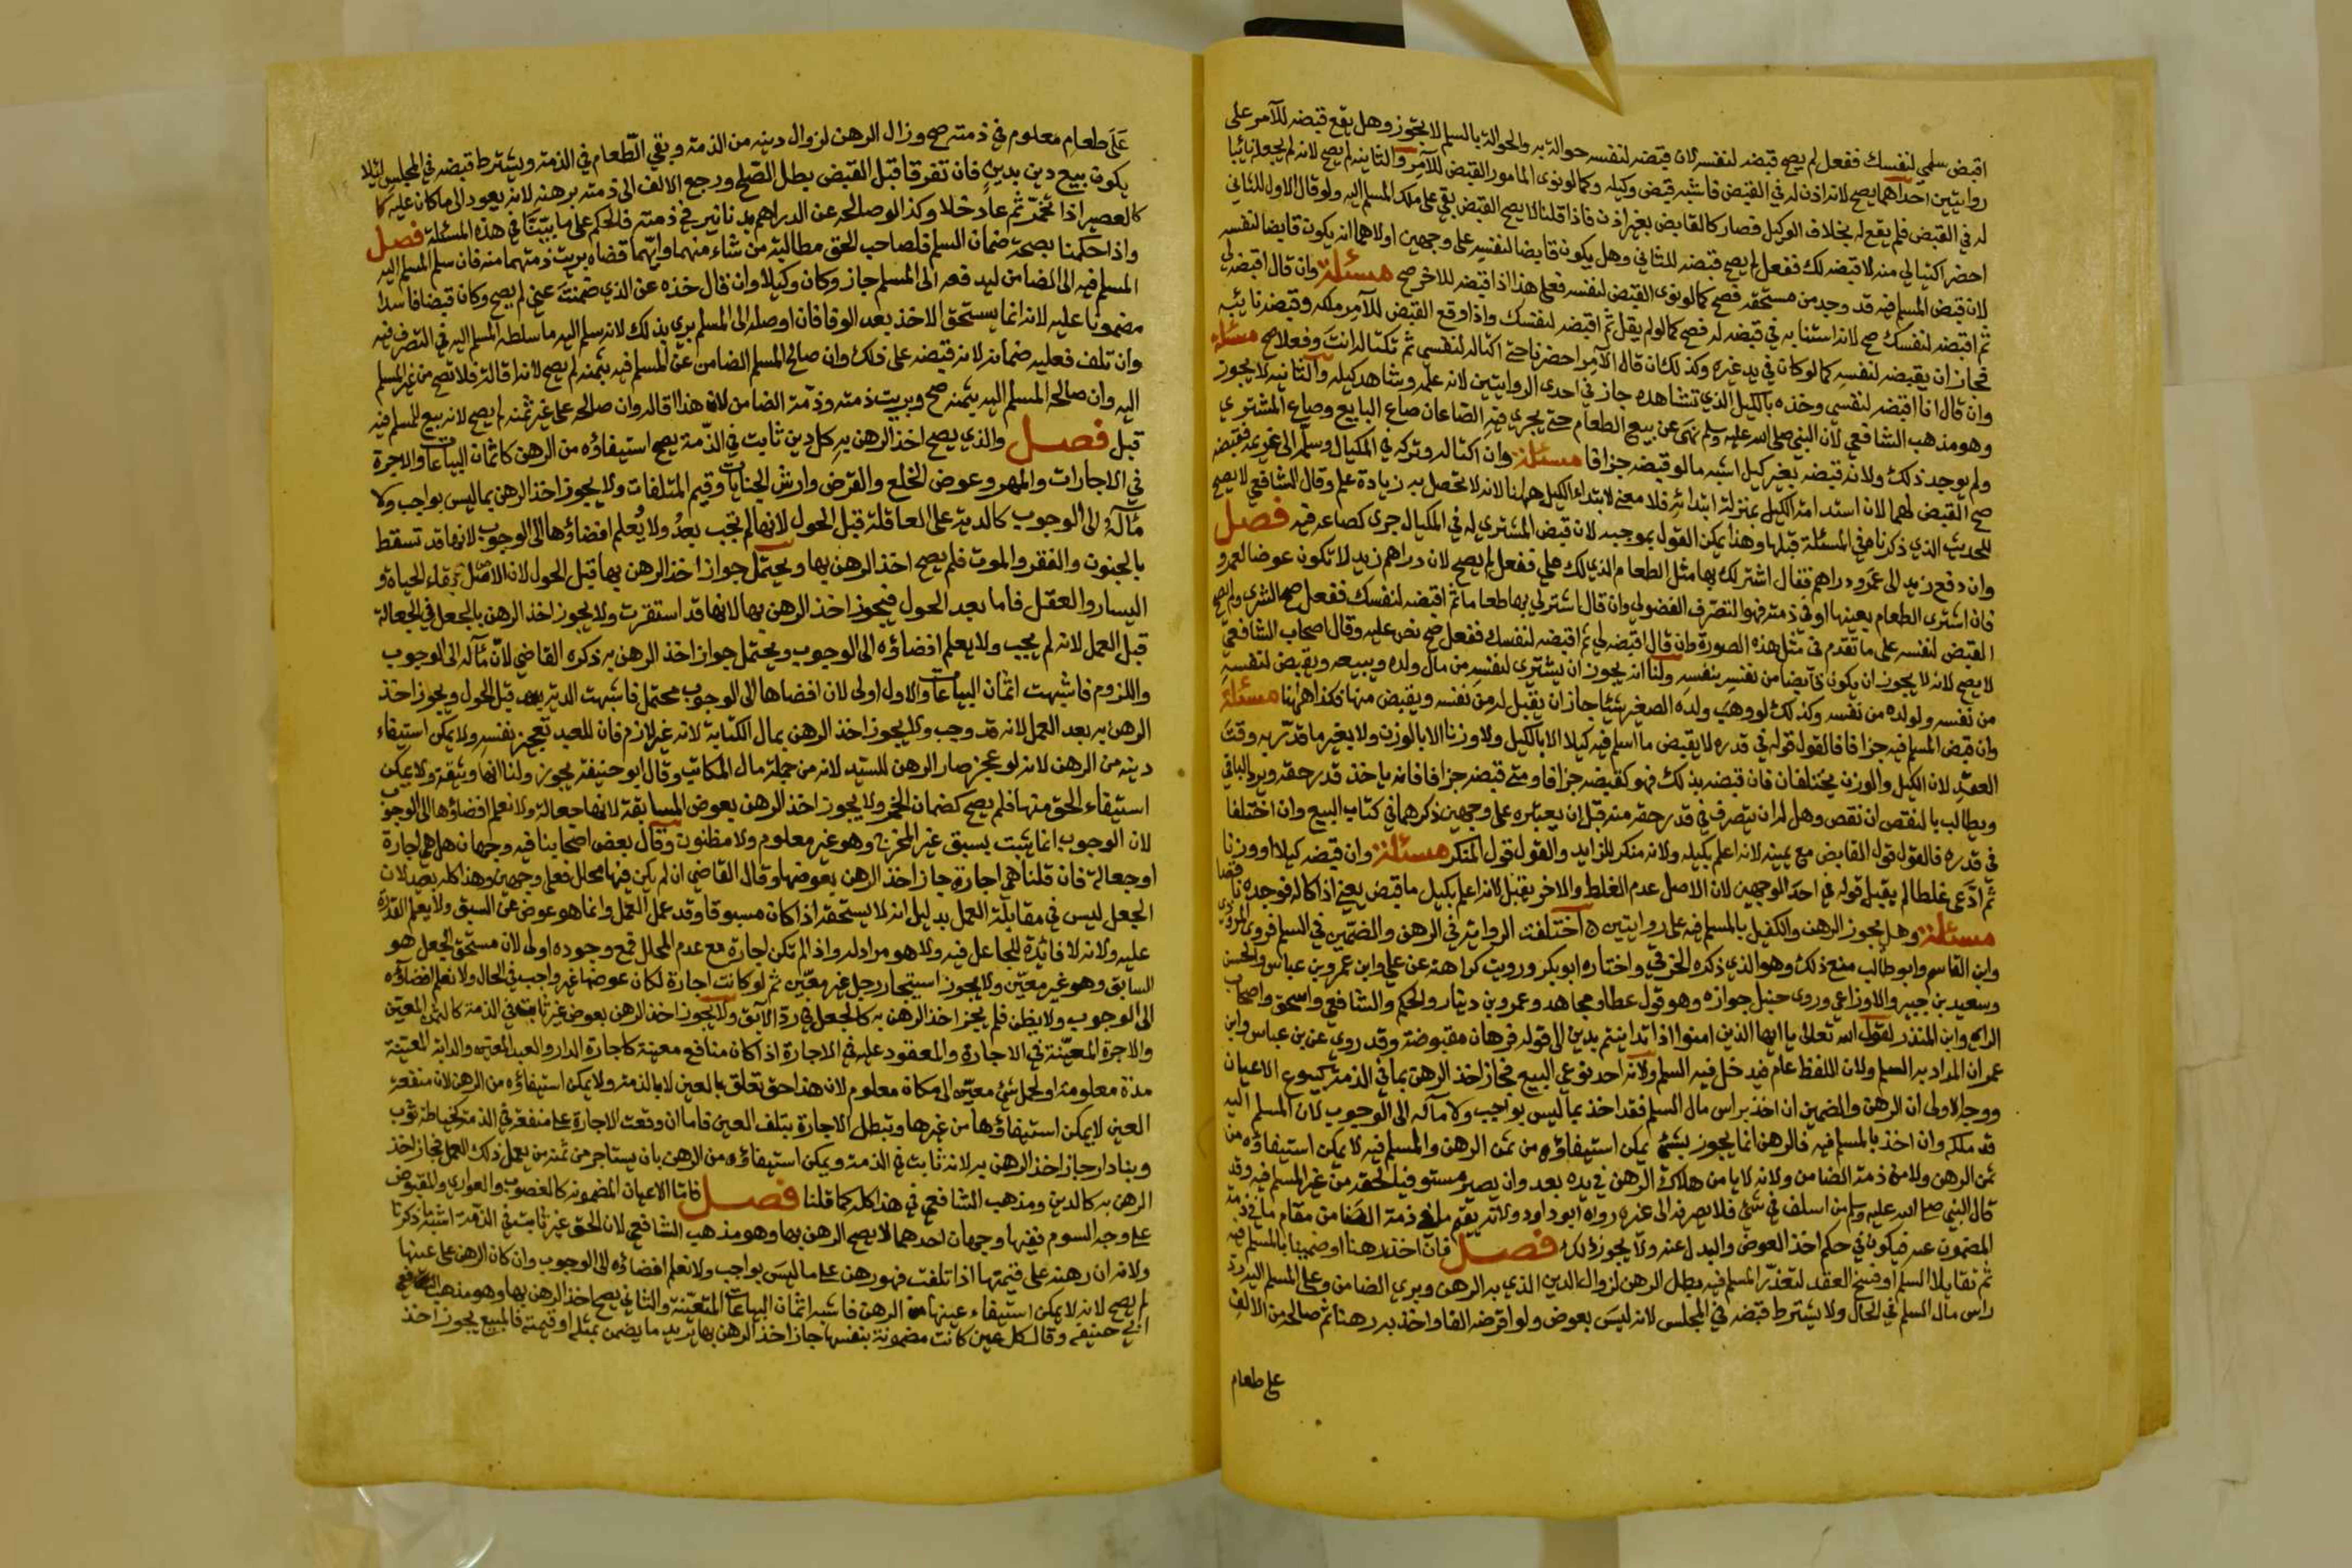 اقبض سلمي لنفسك ففعل لم يصح قبضه لنفسه لان قبضه لنفسه حوالة به والحوالة بالسلم لا تجوز وهل يقع قبضه للآمر على
روايتين احداهما يصح لانه اذن له في القبض فاشبه قبض وكيله وكما لو نوى المامور القبض للآمر والثانية لم يصح لانه لم يجعله نائبا
له في القبض فلم يقع له بخلاف الوكيل فصار كالقابض بغير اذن فاذا قلنا لا يصح القبض بقي على ملك المسلم اليه ولو قال الاول للثاني
احضر اكتيالي منه لاقبضه لك ففعل لم يصح قبضه للثاني وهل يكون قابضا لنفسه على وجهين اولاهما انه يكون قابضا لنفسه
لان قبض المسلم فيه قد وجد من مستحقه فصح كما لو نوى القبض لنفسه فعلى هذا اذا قبضه للاخر صح مسئلة وان قال اقبضه لي
ثم اقبضه لنفسك صح لانه استنابه في قبضه له فصح كما لو لم يقل ثم اقبضه لنفسك واذا وقع القبض للآمر ملكه وقبضه نائبه
فجاز ان يقبضه لنفسه كما لو كان في يد غيره وكذلك ان قال الآمر احضرنا حتى اكتاله لنفسي ثم تكتاله انت وفعلا صح مسئلة
وان قال انا اقبضه لنفسي وخذه بالكيل الذي تشاهده جاز في احدى الروايتين لانه علمه وشاهد كيله والثانية لا يجوز
وهو مذهب الشافعي لان النبي صلى الله عليه وسلم نهى عن بيع الطعام حتى يجري فيه الصاعان صاع البايع وصاع المشتري
ولم يوجد ذلك ولانه قبضه بغير كيل اشبه ما لو قبضه جزافا مسئلة وان اكتاله وتركه في المكيال وسلمه الى غريمه فقبضه
صح القبض لهما لان استدامة الكيل بمنزلة ابتدائه فلا معنى لابتداء الكيل ههنا لانه لا تحصل به زيادة علم وقال الشافعي لا يصح
للحديث الذي ذكرناه في المسئلة قبلها وهذا يمكن القول بموجبه لان قبض المشتري له في المكيال جرى لصاعه فيه فصل
وان دفع زيد الى عمرو دراهم فقال اشتر لك بها مثل الطعام الذي لك علي ففعل لم يصح لان دراهم زيد لا تكون عوضا لعمرو
فان اشترى الطعام بعينها او في ذمته فهو التصرف الفضولي وان قال اشتر لي بها طعاما ثم اقبضه لنفسك ففعل صح الشرى ولم يصح
القبض لنفسه على ما تقدم في مثل هذه الصورة وان قال اقبضه لي ثم اقبضه لنفسك ففعل صح نص عليه وقال اصحاب الشافعي
لا يصح لانه لا يجوز ان يكون قابضا من نفسه لنفسه ولنا انه يجوز ان يشتري لنفسه من مال ولده ويبيعه ويقبض لنفسه
من نفسه ولولده من نفسه وكذلك لو وهب ولده الصغير شيئا جاز ان يقبل له من نفسه ويقبض منها فكذا ههنا مسئلة
وان قبض المسلم فيه جزافا فالقول قوله في قدره لا يقبض ما اسلم فيه كيلا الا بالكيل ولا وزنا الا بالوزن ولا بغير ما قدر به وقت
العقد لان الكيل والوزن يختلفان فان قبضه بذلك فهو كقبضه جزافا ومتى قبضه جزافا فانه ياخذ قدر حقه ويرد الباقي
ويطالب بالنقص ان نقص وهل له ان يتصرف في قدر حقه منه قبل ان يعتبره على وجهين ذكرهما في كتاب البيع وان اختلفا
في قدره فالقول قول القابض مع يمينه لانه اعلم بكيله ولانه منكر للزايد والقول قول المنكر مسئلة وان قبضه كيلا او وزنا
ثم ادعى غلطا لم يقبل قوله في احد الوجهين لان الاصل عدم الغلط والاخر يقبل لانه اعلم بكيل ما قبض يعني اذا كاله فوجده ناقصا
مسئلة وهل يجوز الرهن والكفيل بالمسلم فيه على روايتين اختلفت الرواية في الرهن والضمين في السلم فروى المروذي
وابن القاسم وابو طالب منع ذلك وهو الذي ذكره الخرقي واختاره ابو بكر ورويت كراهته عن علي وابن عمر وبن عباس والحسن
وسعيد بن جبير والاوزاعي وروى حنبل جوازه وهو قول عطا ومجاهد وعمرو بن دينار والحكم والشافعي واسحق واصحاب
الراي وابن المنذر لقول الله تعالى يا ايها الذين امنوا اذا تداينتم بدين الى قوله فرهان مقبوضة وقد روي عن بن عباس وابن
عمر ان المراد به السلم ولان اللفظ عام فيدخل فيه السلم ولانه احد نوعي البيع فجاز اخذ الرهن بما في الذمة كبيوع الاعيان
ووجه الاولى ان الرهن والضمين ان اخذ براس مال السلم فقد اخذ بما ليس بواجب ولا مآله الى الوجوب لان المسلم اليه
قد ملكه وان اخذ بالمسلم فيه فالرهن انما يجوز بشئ يمكن استيفاؤه من ثمن الرهن والمسلم فيه لا يمكن استيفاؤه من
ثمن الرهن ولا من ذمة الضامن ولانه لا يامن هلاك الرهن في يده بعدوان يصير مستوفيا لحقه من غير المسلم فيه وقد
قال النبي صلى الله عليه وسلم من اسلف في شئ فلا يصرفه الى غيره رواه ابو داود ولانه يقيم ما في ذمة الضامن مقام ما في ذمة
المضمون عنه فيكون في حكم اخذ العوض والبدل عنه ولا يجوز ذلك فصل فان اخذ رهنا او ضمينا بالمسلم فيه
ثم تقايلا السلم او فسخ العقد لتعذر المسلم فيه بطل الرهن لزوال الدين الذي به الرهن وبرئ الضامن وعلى المسلم اليه رد
راس مال السلم في الحال ولا يشترط قبضه في المجلس لانه ليس بعوض ولو اقرضه الفا واخذ به رهنا ثم صالحه من الالف
على طعام
على طعام معلوم في ذمته صح وزال الرهن لزوال دينه من الذمة وبقي الطعام في الذمة ويشترط قبضه في المجلس لئلا
يكون بيع دين بدين فان تفرقا قبل القبض بطل الصلح ورجع الالف الى ذمته برهنه لانه يعود الى ما كان عليه كا
كالعصير اذا تخمر ثم عاد خلا وكذا لو صالحه عن الدراهم بدنانير في ذمته فالحكم على ما بينا في هذه المسئلة فصل
واذا حكمنا بصحة ضمان السلم فلصاحب الحق مطالبة من شاء منهما وايهما قضاه بريت ذمتهما منه فان سلم المسلم اليه
المسلم فيه الى الضامن ليدفعه الى المسلم جاز وكان وكيلا وان قال خذه عن الذي ضمنت عني لم يصح وكان قبضا فاسدا
مضمونا عليه لانه انما يستحق الاخذ بعد الوفا فان اوصله الى المسلم بري بذلك لانه سلم اليه ما سلطه المسلم اليه في التصرف فيه
وان تلف فعليه ضمانه لانه قبضه على ذلك وان صالح المسلم الضامن عن المسلم فيه بثمنه لم يصح لانه اقالة فلا تصح من غير المسلم
اليه وان صالحه المسلم اليه بثمنه صح وبريت ذمته وذمة الضامن لان هذا اقالة وان صالحه على غير ثمنه لم يصح لانه بيع للمسلم فيه
قبل فصل والذي يصح اخذ الرهن به كل دين ثابت في الذمة يصح استيفاؤه من الرهن كاثمان البياعات والاجرة
في الاجارات والمهر وعوض الخلع والقرض وارش الجنايات وقيم المتلفات ولا يجوز اخذ الرهن بما ليس بواجب ولا
مآله الى الوجوب كالدية على العاقلة قبل الحول لانها لم تجب بعد ولا يعلم افضاؤها الى الوجوب لانها قد تسقط
بالجنون والفقر والموت فلم يصح اخذ الرهن بها ويحتمل جواز اخذ الرهن بها قبل الحول لان الاصل بقاء الحياة و
اليسار والعقل فاما بعد الحول فيجوز اخذ الرهن بها لانها قد استقرت ولا يجوز اخذ الرهن بالجعل في الجعالة
قبل العمل لانه لم يجب ولا يعلم افضاؤه الى الوجوب ويحتمل جواز اخذ الرهن به ذكره القاضي لان مآله الى الوجوب
واللزوم فاشبهت اثمان البياعات والاول اولى لان افضاها الى الوجوب محتمل فاشبهت الدية قبل الحول ويجوز اخذ
الرهن به بعد العمل لانه قد وجب ولا يجوز اخذ الرهن بمال الكتابة لانه غير لازم فان للعبد تعجيز نفسه ولا يمكن استيفاء
دينه من الرهن لانه لو عجز صار الرهن للسيد لانه من جملة مال المكاتب وقال ابو حنيفة يجوز ولنا انها وثيقة ولا يمكن
استيفاء الحق منها فلم يصح كضمان الخمر ولا يجوز اخذ الرهن بعوض المسابقة لانها جعالة ولا نعلم افضاؤها الى الوجوب
لان الوجوب انما يثبت بسبق غير المخرج وهو غير معلوم ولا مظنون وقال بعض اصحابنا فيه وجهان هل هي اجارة
او جعالة فان قلنا هي اجارة جاز اخذ الرهن بعوضها وقال القاضي ان لم يكن فيها محلل فعلى وجهين وهذا كله بعيد لان
الجعل ليس في مقابلة العمل بدليل انه لا يستحقه اذا كان مسبوقا وقد عمل العمل وانما هو عوض عن السبق ولا يعلم القدرة
عليه ولانه لا فائدة للجاعل فيه ولا هو مراد له واذا لم تكن اجارة مع عدم المحلل فمع وجوده اولى لان مستحق الجعل هو
السابق وهو غير معين ولا يجوز استيجار رجل غير معين ثم لو كانت اجارة لكان عوضها غير واجب في الحال ولا نعلم افضاؤه
الى الوجوب ولا يظن فلم يجز اخذ الرهن به كالجعل في رد الآبق ولا يجوز اخذ الرهن بعوض غير ثابت في الذمة كالثمن المعين
والاجرة المعينة في الاجارة والمعقود عليه في الاجارة اذا كان منافع معينة كاجارة الدار والعبد المعين والدابة المعينة
مدة معلومة او لحمل شئ معين الى مكان معلوم لان هذا حق تعلق بالعين لا بالذمة ولا يمكن استيفاؤه من الرهن لان منفعة
العين لا يمكن استيفاؤها من غيرها وتبطل الاجارة بتلف العين فاما ان وقعت الاجارة على منفعة في الذمة كخياطة ثوب
وبناء دار جاز اخذ الرهن به لانه ثابت في الذمة ويمكن استيفاؤه من الرهن بان يستاجر من ثمنه من يعمل ذلك العمل فجاز اخذ
الرهن به كالدين ومذهب الشافعي في هذا كله كما قلنا فصل فاما الاعيان المضمونة كالغصوب والعواري والمقبوض
على وجه السوم ففيها وجهان احدهما لا يصح الرهن بها وهو مذهب الشافعي لان الحق غير ثابت في الذمة اشبه ما ذكرنا
ولانه ان رهنه على قيمتها اذا تلفت فهو رهن على ما ليس بواجب ولا نعلم افضاؤه الى الوجوب وان كان الرهن على عينها
لم يصح لانه لا يمكن استيفاء عينها من الرهن فاشبه اثمان البياعات المتعينة والثاني يصح اخذ الرهن بها وهو مذهب
ابي حنيفة وقال كل عين كانت مضمونة بنفسها جاز اخذ الرهن بها يريد ما يضمن بمثله او قيمته فالمبيع يجوز اخذ